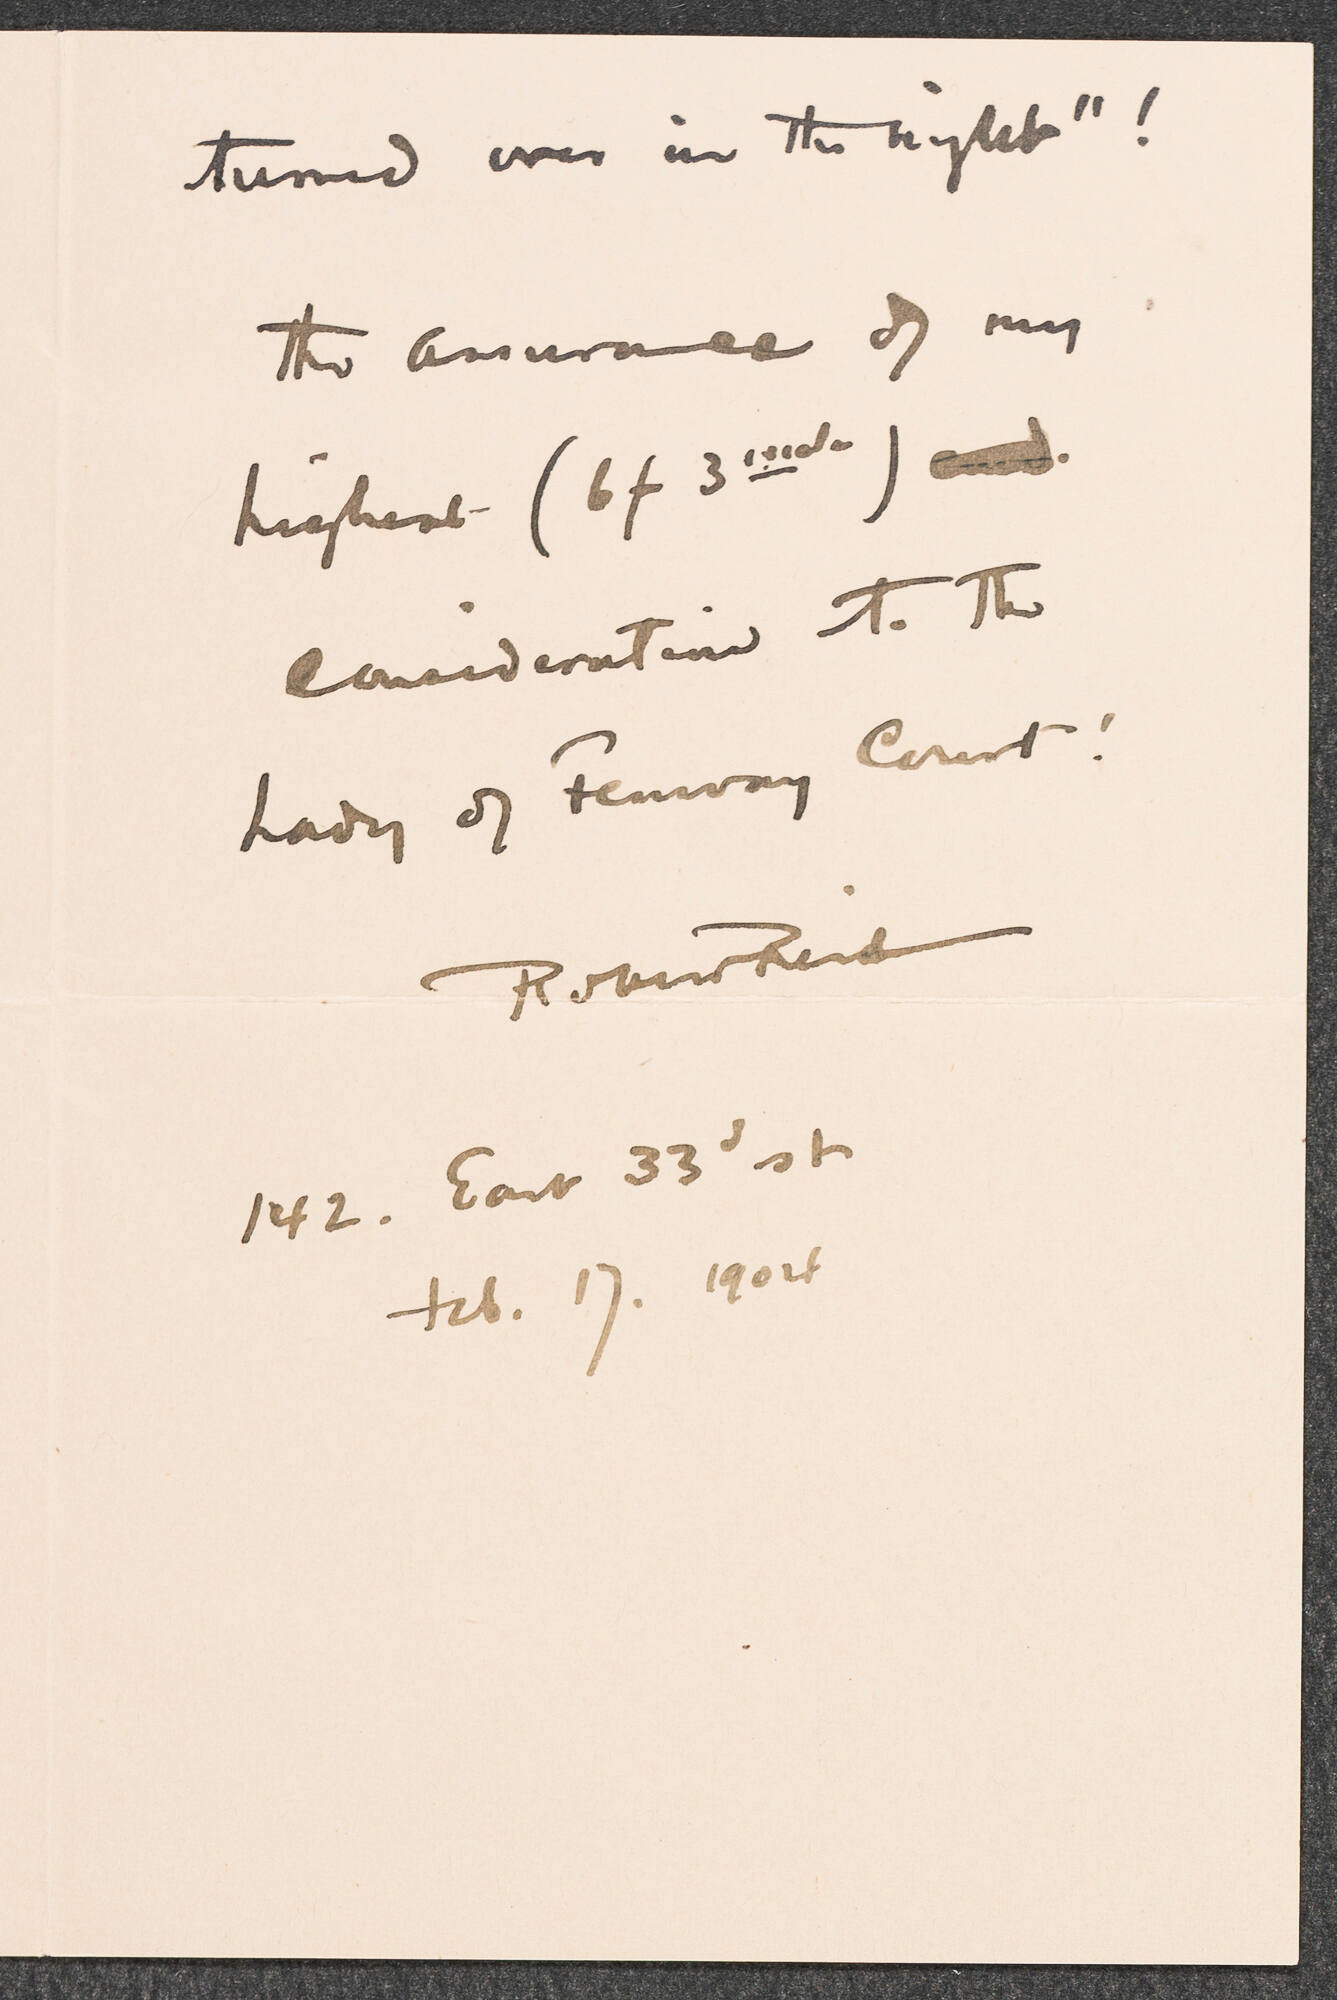 turned over in the night"!
the assurance of my
highest (6 f 3
consideration to the
Lady of Fenway Court!
Robert Reid
142. East 33d st
Feb. 17. 1904